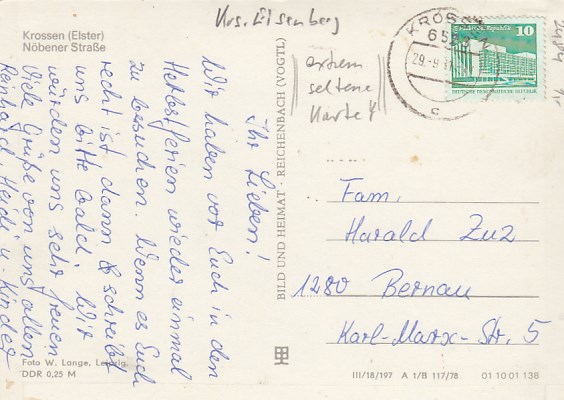 Krossen (Elster)
Nöbener Straße
Krs. Eisenberg
extrem
seltene
Karte
KROSSEN
65
29.-9.
c
10
DEUTSCHE DEMOKRATISCHE REPUBLIK
Ihr Lieben!
Wir haben vor Euch in den
Herbstferien wieder einmal
zu besuchen. Wenn es Euch
recht ist dann schreibt
uns bitte bald. Wir
würden uns sehr freuen
Viele Grüße von uns allen
Reinhard, Heidi u. Kinder
BILD UND HEIMAT · REICHENBACH (VOGTL)
Fam.
Harald Zuz
1280 Bernau
Karl-Marx-Str. 5
Foto W. Lange, Leipzig
DDR 0,25 M
III/18/197 A 1/B 117/78 01 10 01 138